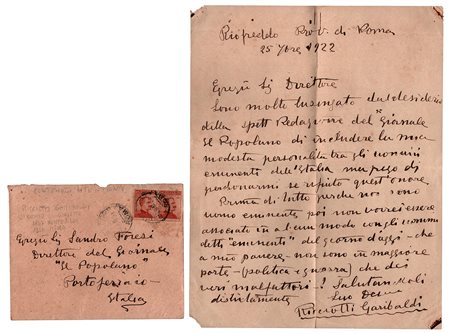 Riofreddo Prov. di Roma
25 7bre 1922
Egregio Sig Direttore
Sono molto lusingato dal desiderio
della spett Redazione del "Giornale
Il Popolano" di includere la mia
modesta personalità tra gli uomini
eminenti dell'Italia ma prego di
perdonarmi se rifiuto quest'onore
Prima di tutto perche non sono
uomo eminente poi non vorrei essere
associato in alcun modo con gli uomini
detti "eminenti" del giorno d'oggi - che
a mio parere - non sono in maggiore
parte - (politica e guerra) che dei
veri malfattori! Salutandoli
distintamente
Suo Dev
Ricciotti Garibaldi
Egregio Sig Sandro Foresi
Direttore del Giornale
"Il Popolano"
Portoferraio
Italia